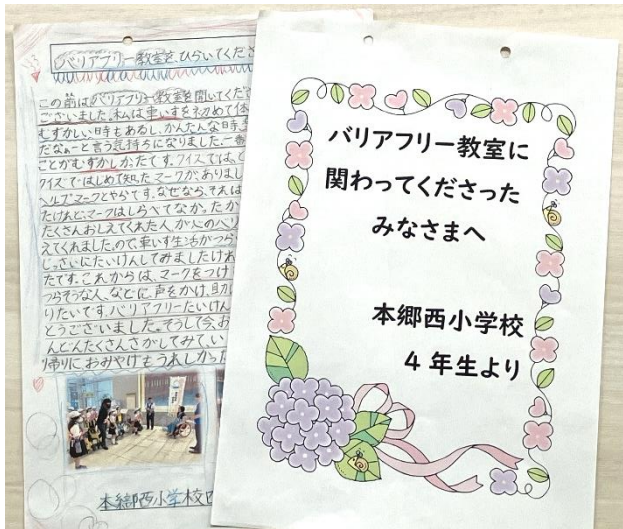 バリアフリー教室を、ひらいてくださ
この前はバリアフリー教室を開いてくださ
ございました。私は車いすを初めて体
むずかしい時もあるし、かんたんな時
だなぁーと言う気持ちになりました。一番
ことがむずかしかったです。クイズでは、
クイズではじめて知ったマークがありまし
ヘルプマークとやらです。なぜなら、それは
たけれど、マークはしらべてなかったか
たくさんおしえてくれた人が心のバリ
えてくれました。ので、車いす生活がつら
じっさいにたいけんしてみましたけれ
たです。これからは、マークをつけ
つらそうな人、などに、声をかけ、助け
りたいです。バリアフリーたいけん
とうございました。そうして今、お
んどんたくさんさがしてみてい
帰りにおみやげもうれしかった
本郷西小学校
バリアフリー教室に
関わってくださった
みなさまへ
本郷西小学校
4年生より